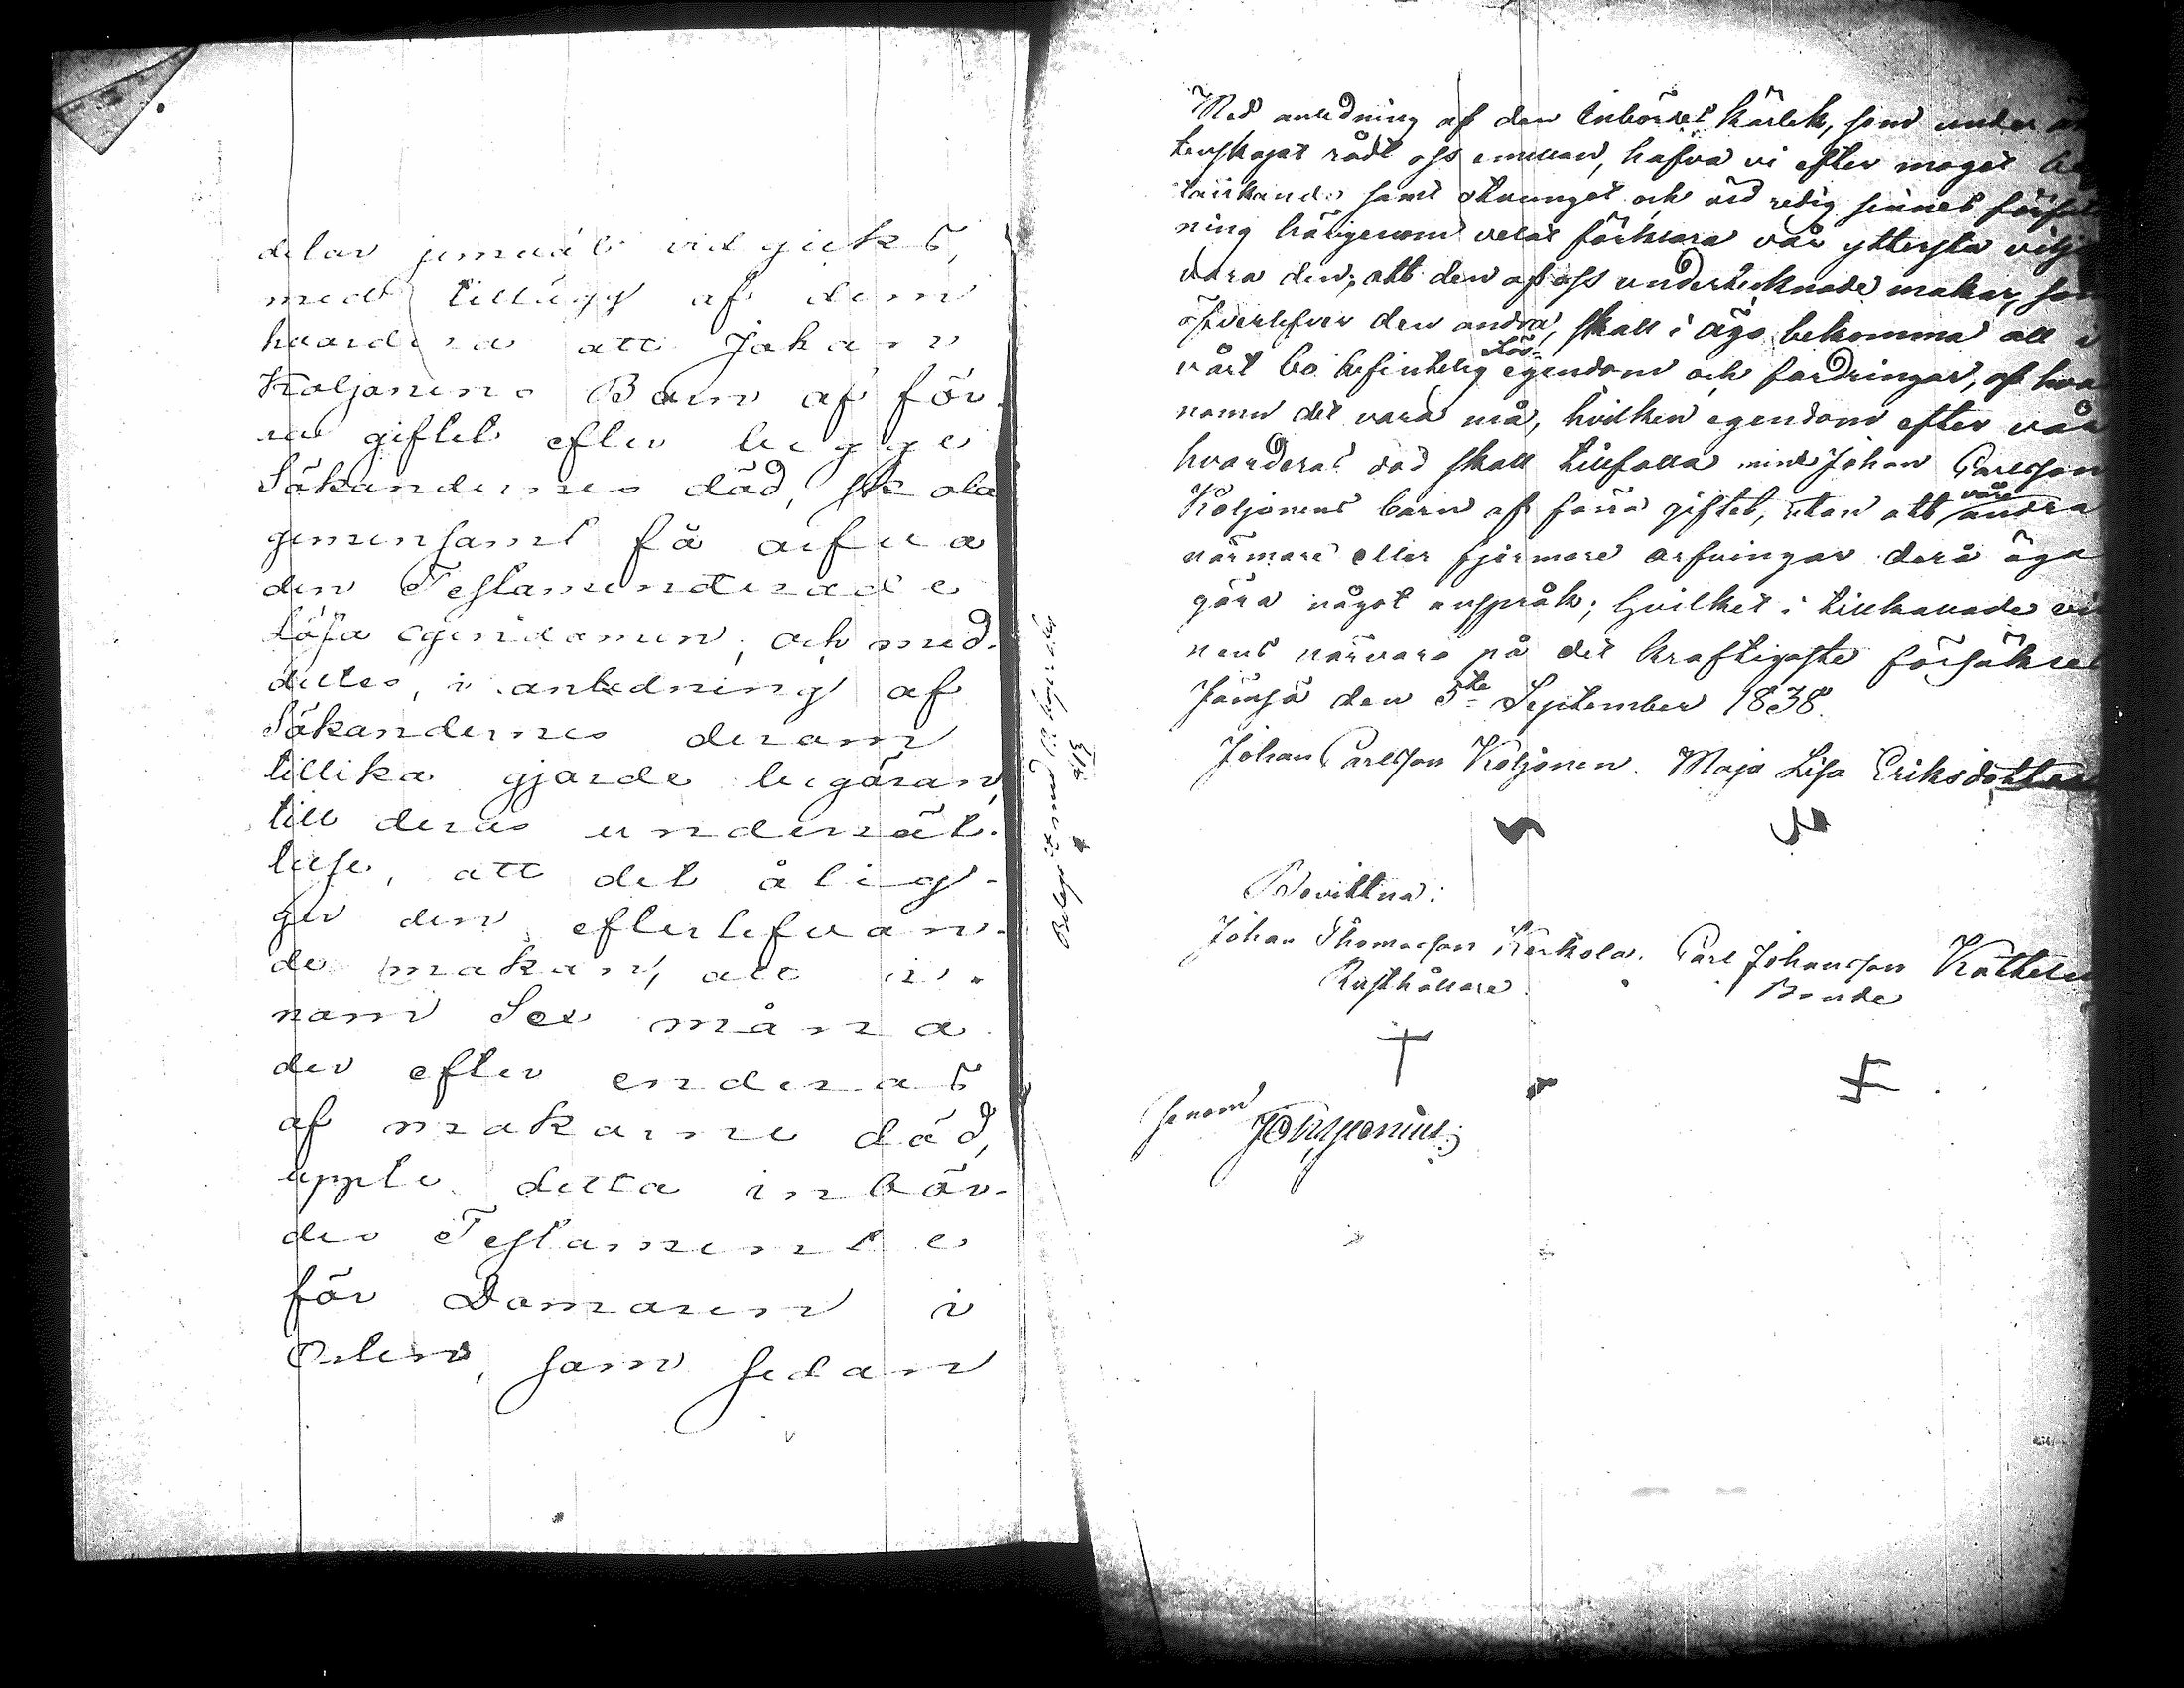 delar jemväl vidgicks,
med tillägg af dem
hvardera att Johan
Koljonens Barn af för-
ra giftet efter begge
Sökandernes död, skola
gemensamt få ärfva
den Testamenterade
lösa egendomen; och med-
deltes, i anledning af
Sökandernes derom
tillika gjorde begäran,
till deras underrät-
telse, att det ålig-
ger den efterlefvan-
de makan, att in-
nom Sex måna
der efter enderas
af makarne död,
uppte detta inbör-
des Testamente
för Domaren i
Orten, som sedan
Med anledning af den inbördes kärlek, som under
tenskapet rådt oss emellan, hafva vi efter moget
tänkande samt otvunget och vid redig sinnes författ
ning härigenom velat förklara vår yttersta vilja
vara den, att den af oss undertecknade makar, som
öfverlefver den andra, skall i ägo bekomma all i
vårt bo befintelig lös egendom och fordringar, af hva
namn det vara må, hvilken egendom efter vår
hvarderas död skall tillfalla mine Johan Carlsson
Koljonens barn af förra giftet, utan att våre andra
närmare eller fjermare arfvingar derå äga
göra något anspråk; hvilket i tillkallade vit
nens närvaro på det kraftigaste försäkras
Jämsä den 5te September 1838.
Johan Carlsson Koljonen. Maja Lisa Eriksdotter
Bevittna:
Johan Thomasson Kerkola. Carl Johansson
Rusthållare. Bonde
genom